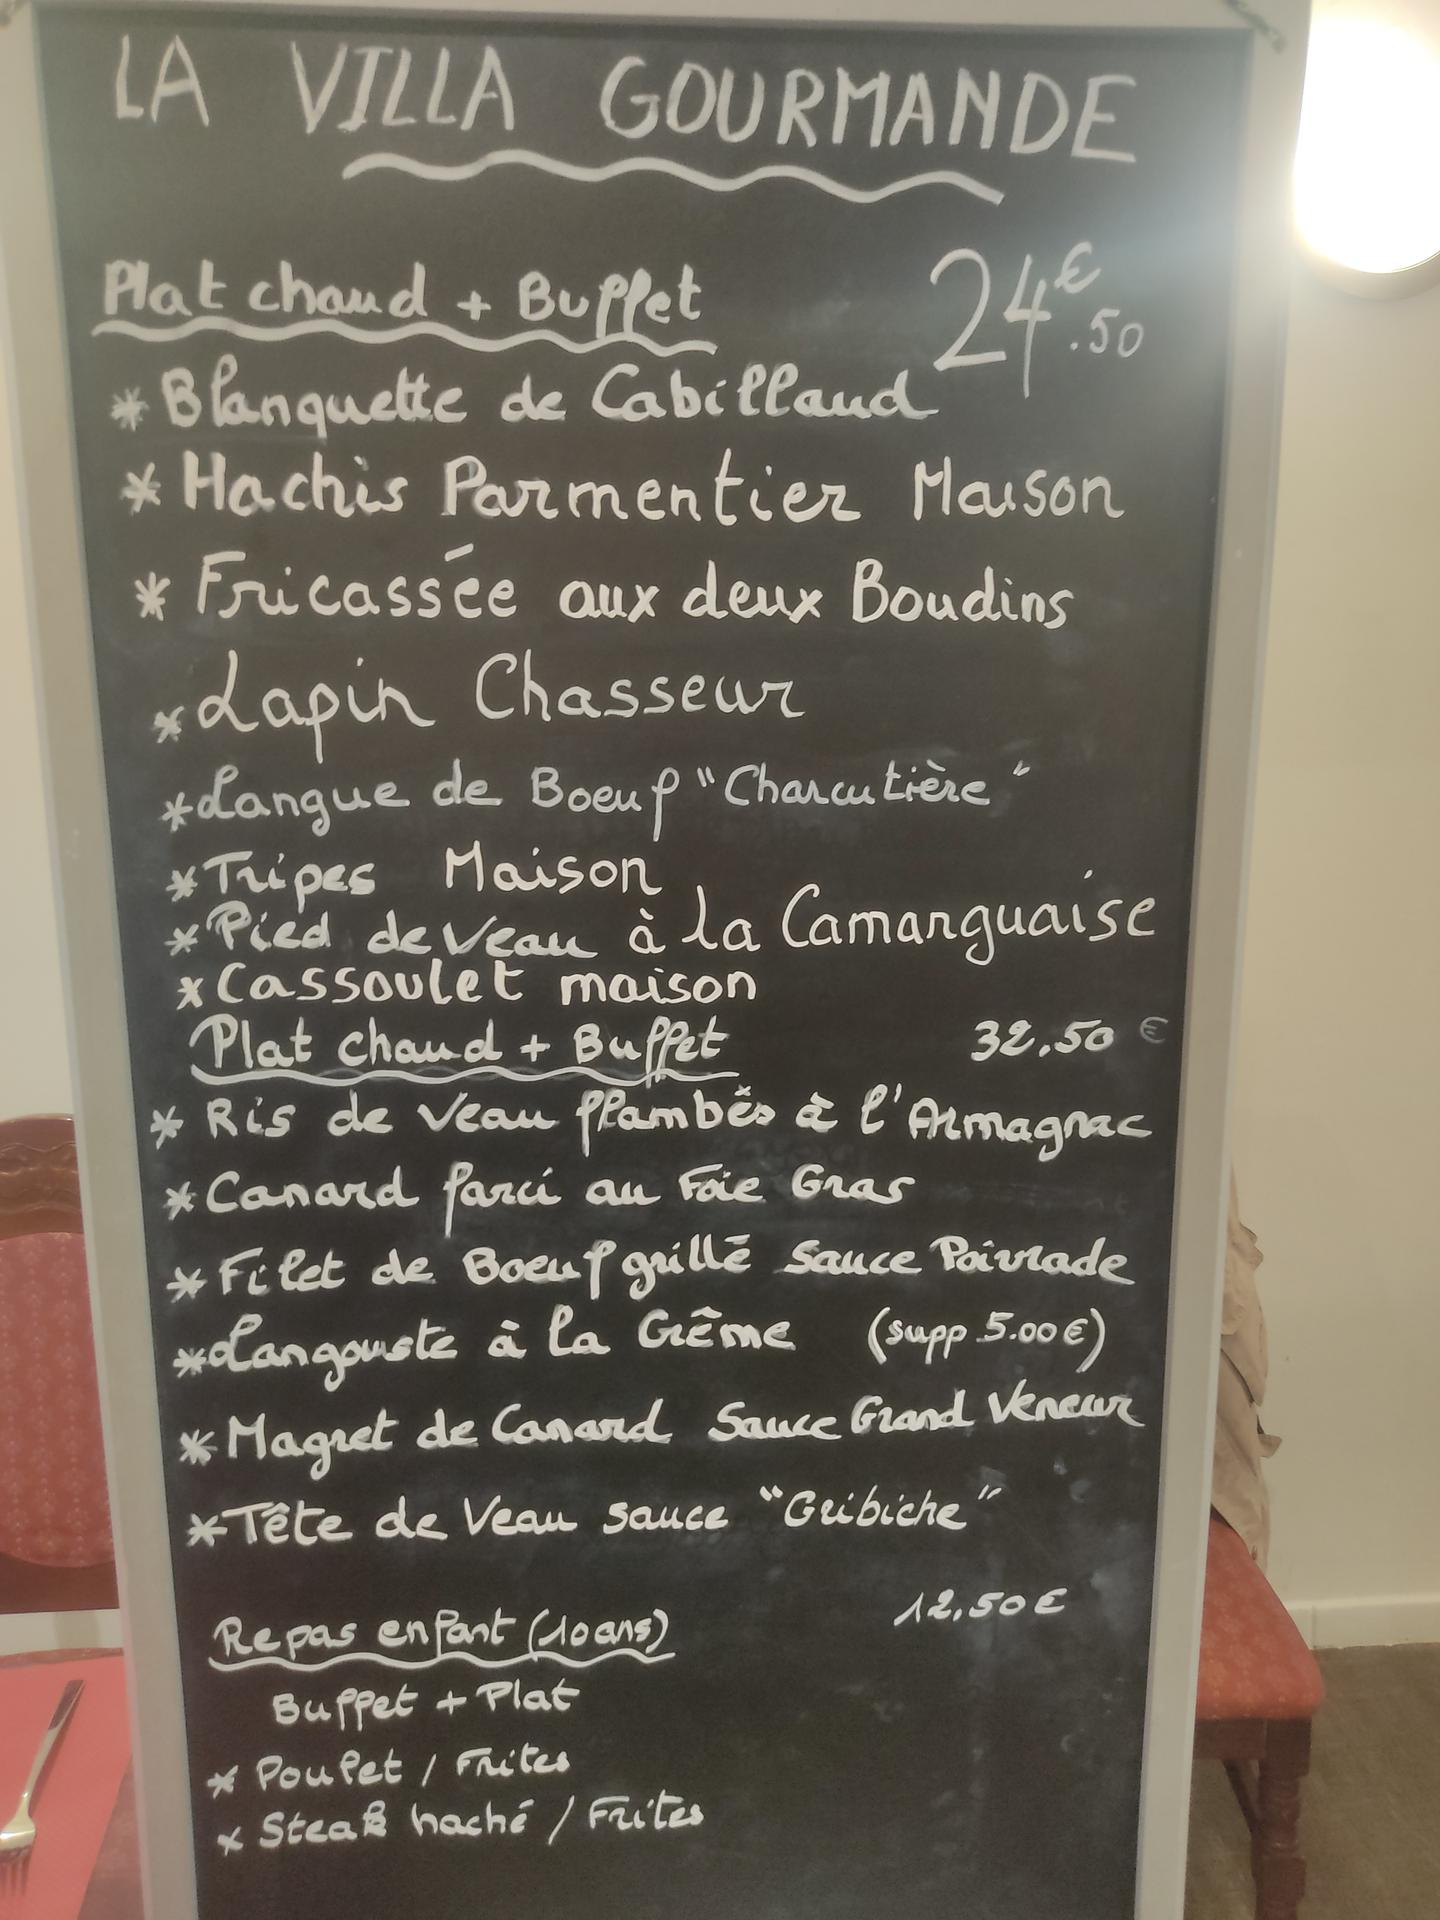 LA VILLA GOURMANDE
Plat chaud + Buffet 24€.50
* Blanquette de Cabillaud
* Hachis Parmentier Maison
* Fricassée aux deux Boudins
* Lapin Chasseur
* Langue de Boeuf "Charcutière"
* Tripes Maison
* Pied de Veau à la Camarguaise
* Cassoulet maison
Plat chaud + Buffet 32.50 €
* Ris de Veau flambés à l'Armagnac
* Canard farci au Foie Gras
* Filet de Boeuf grillé Sauce Poivrade
* Langouste à la Crême (supp 5.00€)
* Magret de Canard Sauce Grand Veneur
* Tête de Veau sauce "Gribiche"
Repas enfant (10ans) 12,50€
Buffet + Plat
* Poulet / Frites
* Steak haché / Frites